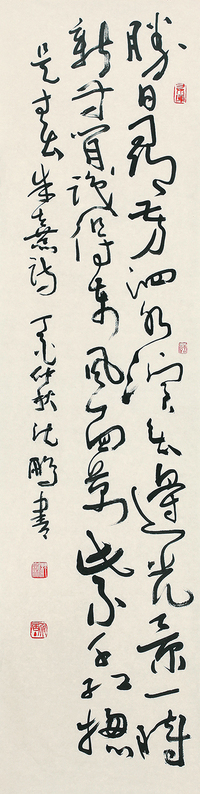 勝日尋芳泗水濱無邊光景一時
新等閒識得東風面萬紫千紅總
是春朱熹詩丁亥仲秋沈鵬書